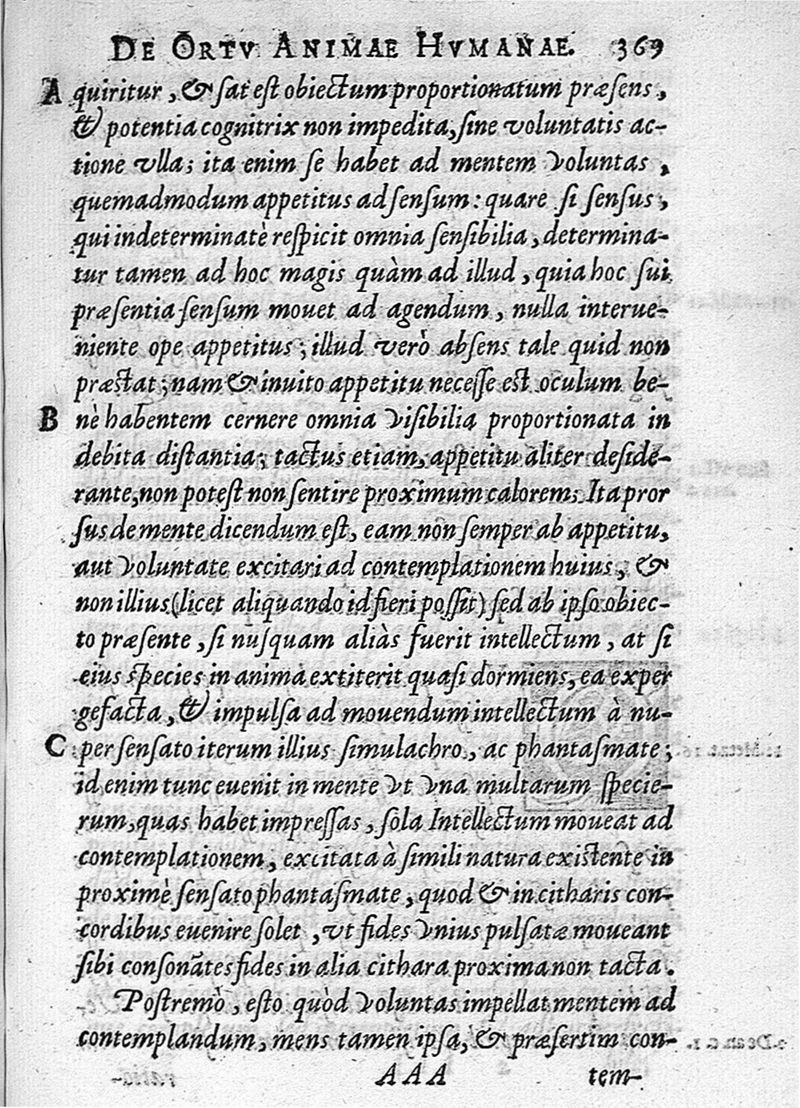 DE ORTV ANIMAE HVMANAE. 369
A quiritur, & sat est obiectum proportionatum præsens,
& potentia cognitrix non impedita, sine voluntatis ac-
tione vlla; ita enim se habet ad mentem voluntas,
quemadmodum appetitus ad sensum: quare si sensus,
qui indeterminatè respicit omnia sensibilia, determina-
tur tamen ad hoc magis quàm ad illud, quia hoc sui
præsentia sensum mouet ad agendum, nulla interue-
niente ope appetitus; illud verò absens tale quid non
præstat; nam & inuito appetitu necesse est oculum be-
B nè habentem cernere omnia visibilia proportionata in
debita distantia; tactus etiam, appetitu aliter deside-
rante, non potest non sentire proximum calorem: Ita pror
sus de mente dicendum est, eam non semper ab appetitu,
aut voluntate excitari ad contemplationem huius, &
non illius (licet aliquando id fieri possit) sed ab ipso obiec-
to præsente, si nusquam aliàs fuerit intellectum, at si
eius species in anima extiterit quasi dormiens, ea exper
gefacta, & impulsa ad mouendum intellectum à nu-
C per sensato iterum illius simulachro, ac phantasmate;
id enim tunc euenit in mente vt vna multarum specie-
rum, quas habet impressas, sola Intellectum moueat ad
contemplationem, excitata à simili natura existente in
proximè sensato phantasmate, quod & in citharis con-
cordibus euenire solet, vt fides vnius pulsatæ moueant
sibi consonãtes fides in alia cithara proxima non tacta.
Postremò, esto quòd voluntas impellat mentem ad
contemplandum, mens tamen ipsa, & præsertim con-
AAA tem-